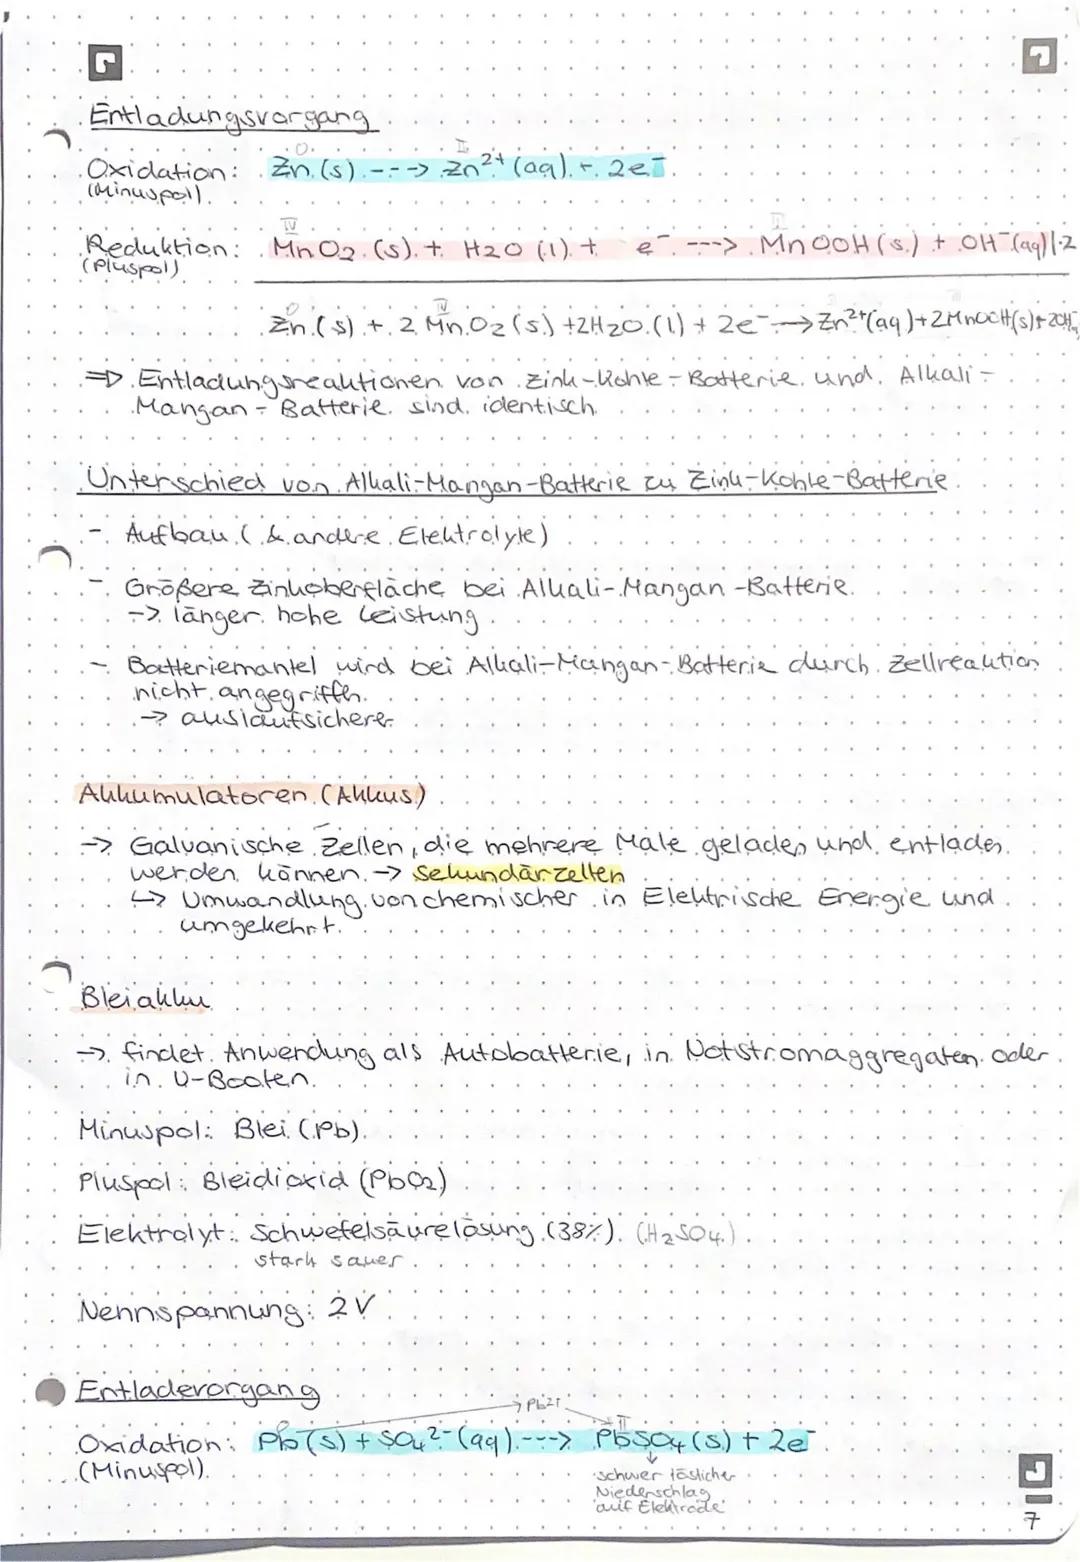 Entladungsvorgang
0 II
Oxidation: Zn (s) ---> Zn²⁺ (aq) + 2e⁻
(Minuspol)
IV
Reduktion: MnO₂ (s) + H2O (l) + e⁻ ---> MnOOH (s) + OH⁻ (aq) |·2
(Pluspol)
0 IV
Zn (s) + 2 MnO₂ (s) + 2H₂O (l) + 2e⁻ → Zn²⁺(aq) + 2MnOOH(s) + 2OH⁻
=> Entladungsreaktionen von Zink-Kohle-Batterie und Alkali-
Mangan-Batterie sind identisch
Unterschied von Alkali-Mangan-Batterie zu Zink-Kohle-Batterie
- Aufbau (& andere Elektrolyte)
- Größere Zinkoberfläche bei Alkali-Mangan-Batterie
-> länger hohe Leistung
- Batteriemantel wird bei Alkali-Mangan-Batterie durch Zellreaktion
nicht angegriffn.
-> auslaufsicherer
Akkumulatoren (Akkus)
-> Galvanische Zellen, die mehrere Male geladen und entladen
werden können -> Sekundärzellen
↳ Umwandlung von chemischer in Elektrische Energie und
umgekehrt.
Bleiakku
-> findet Anwendung als Autobatterie, in Notstromaggregaten oder
in U-Booten.
Minuspol: Blei (Pb)
Pluspol: Bleidioxid (PbO₂)
Elektrolyt: Schwefelsäurelösung (38%) (H₂SO₄)
stark sauer
Nennspannung: 2V
Entladevorgang
→ Pb2+
0 II
Oxidation: Pb (s) + SO₄²⁻ (aq) ---> PbSO₄ (s) + 2e⁻
(Minuspol)
↓
schwer löslicher
Niederschlag
auf Elektrode
7